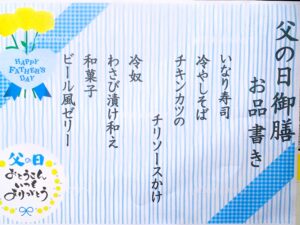 父の日御膳
お品書き
いなり寿司
冷やしそば
チキンカツの
チリソースかけ
冷奴
わさび漬け和え
和菓子
ビール風ゼリー
HAPPY
FATHER'S
DAY
父の日
おとうさん
いつも
ありがとう